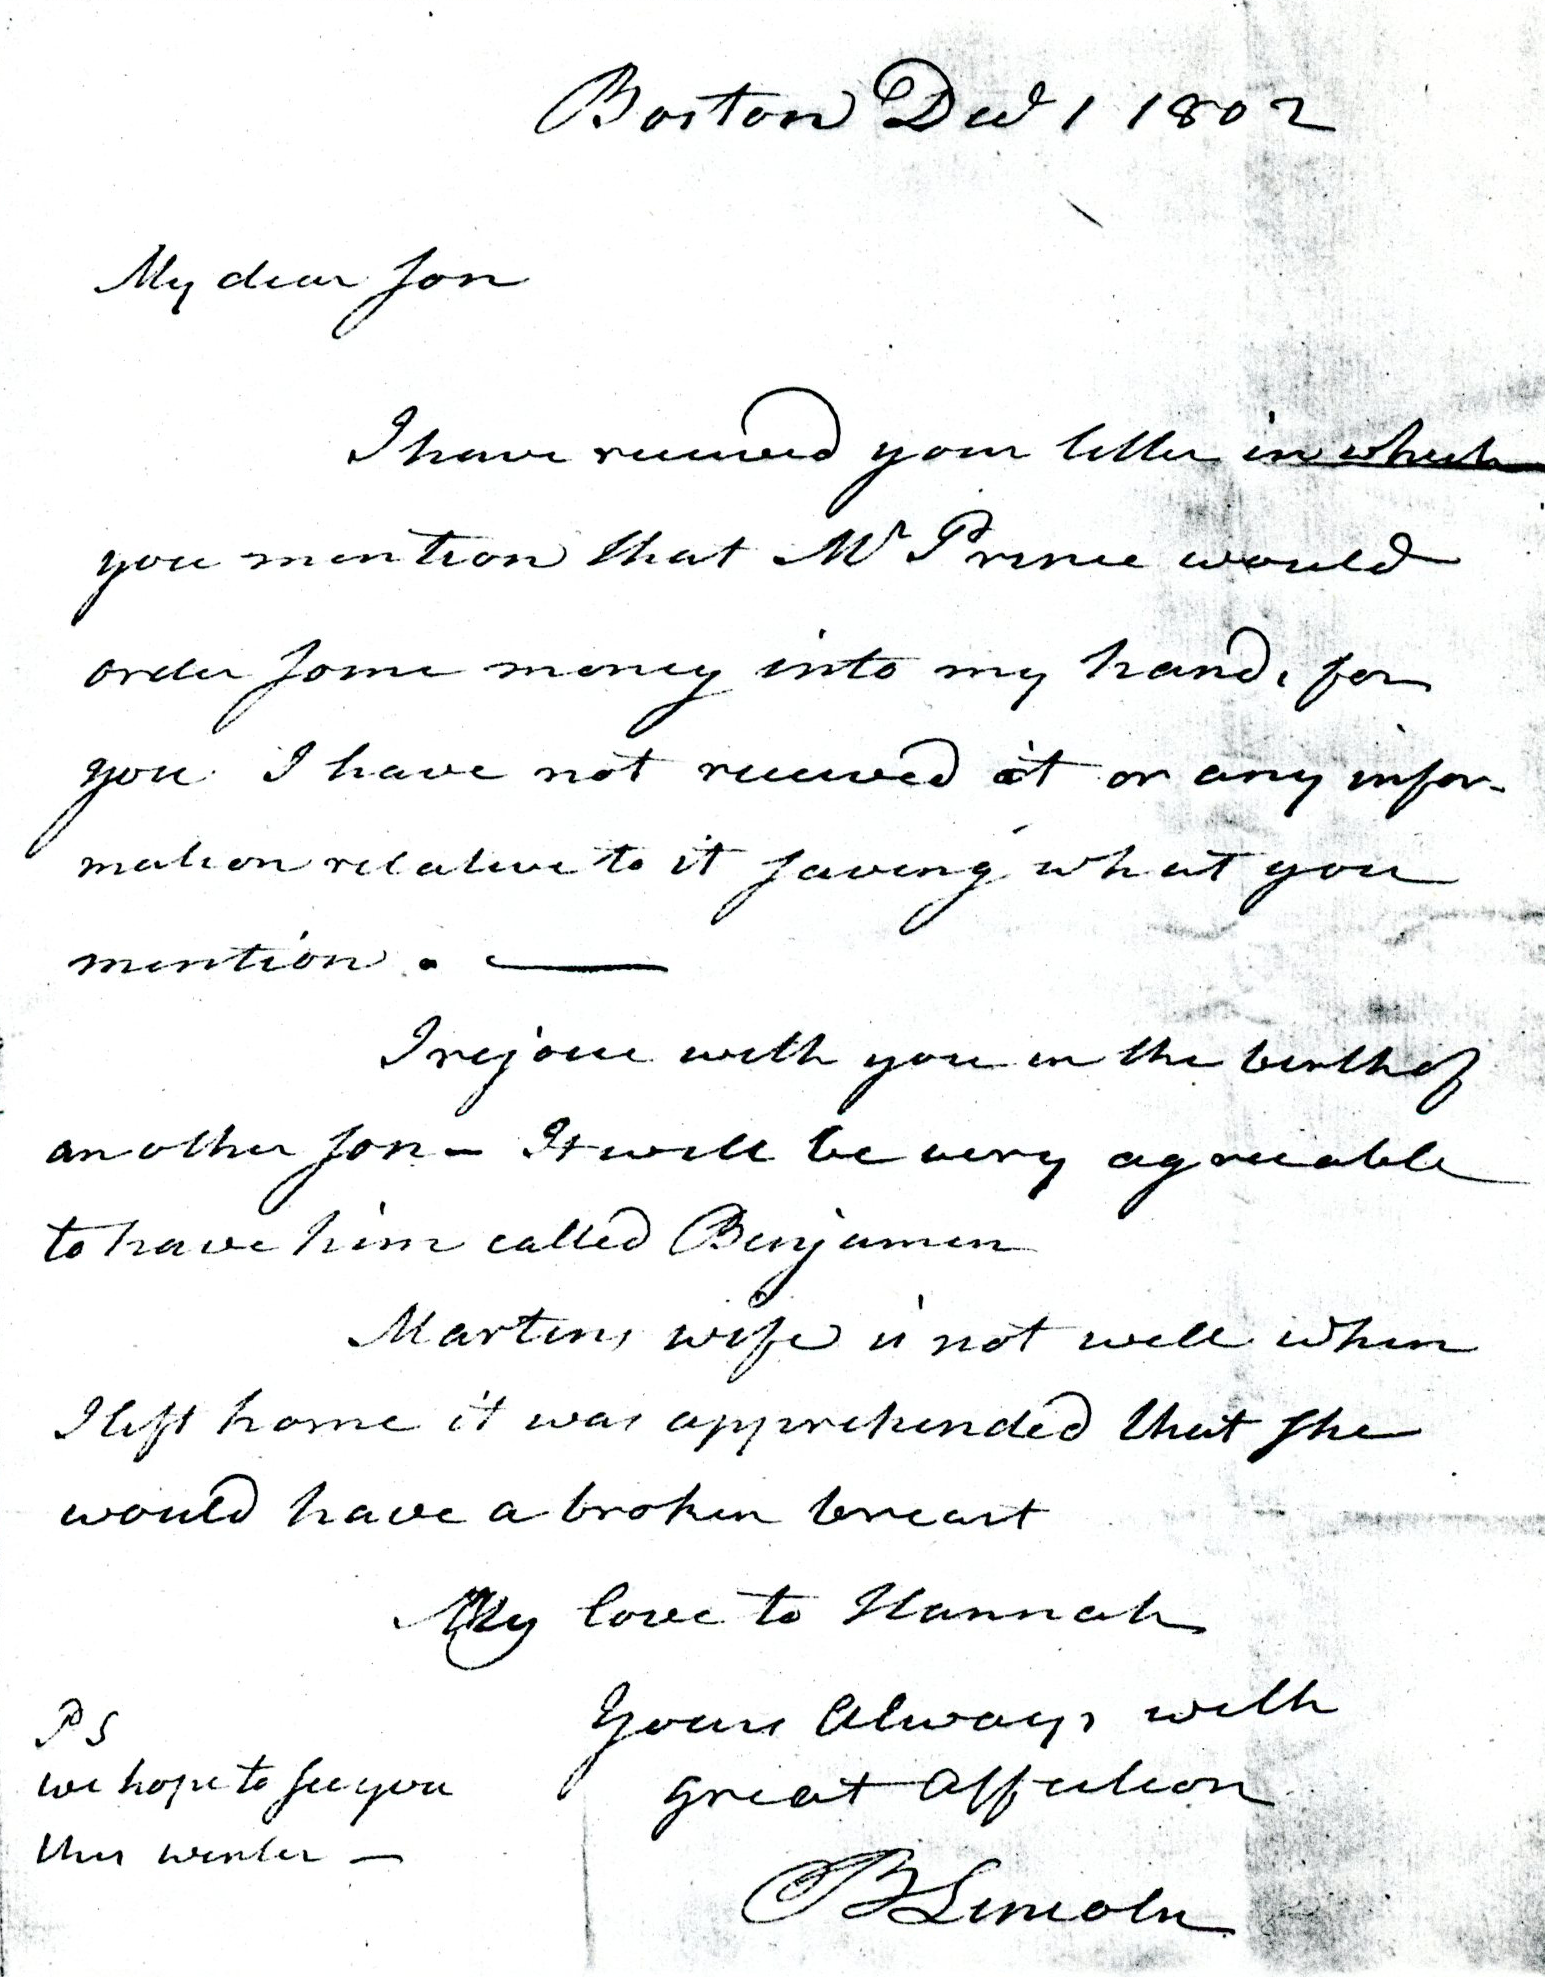 Boston Decr 1 1802
My dear Son
I have received your letter in which
you mention that Mr Prince would
order some money into my hands for
you I have not received it or any infor-
mation relative to it saving what you
mention . —
I rejoice with you in the birth of
another son – It will be very agreeable
to have him called Benjamin
Martins wife is not well when
I left home it was apprehended that she
would have a broken breast
My love to Hannah
Yours Always with
great Affection
BLincoln
PS
we hope to see you
this winter —